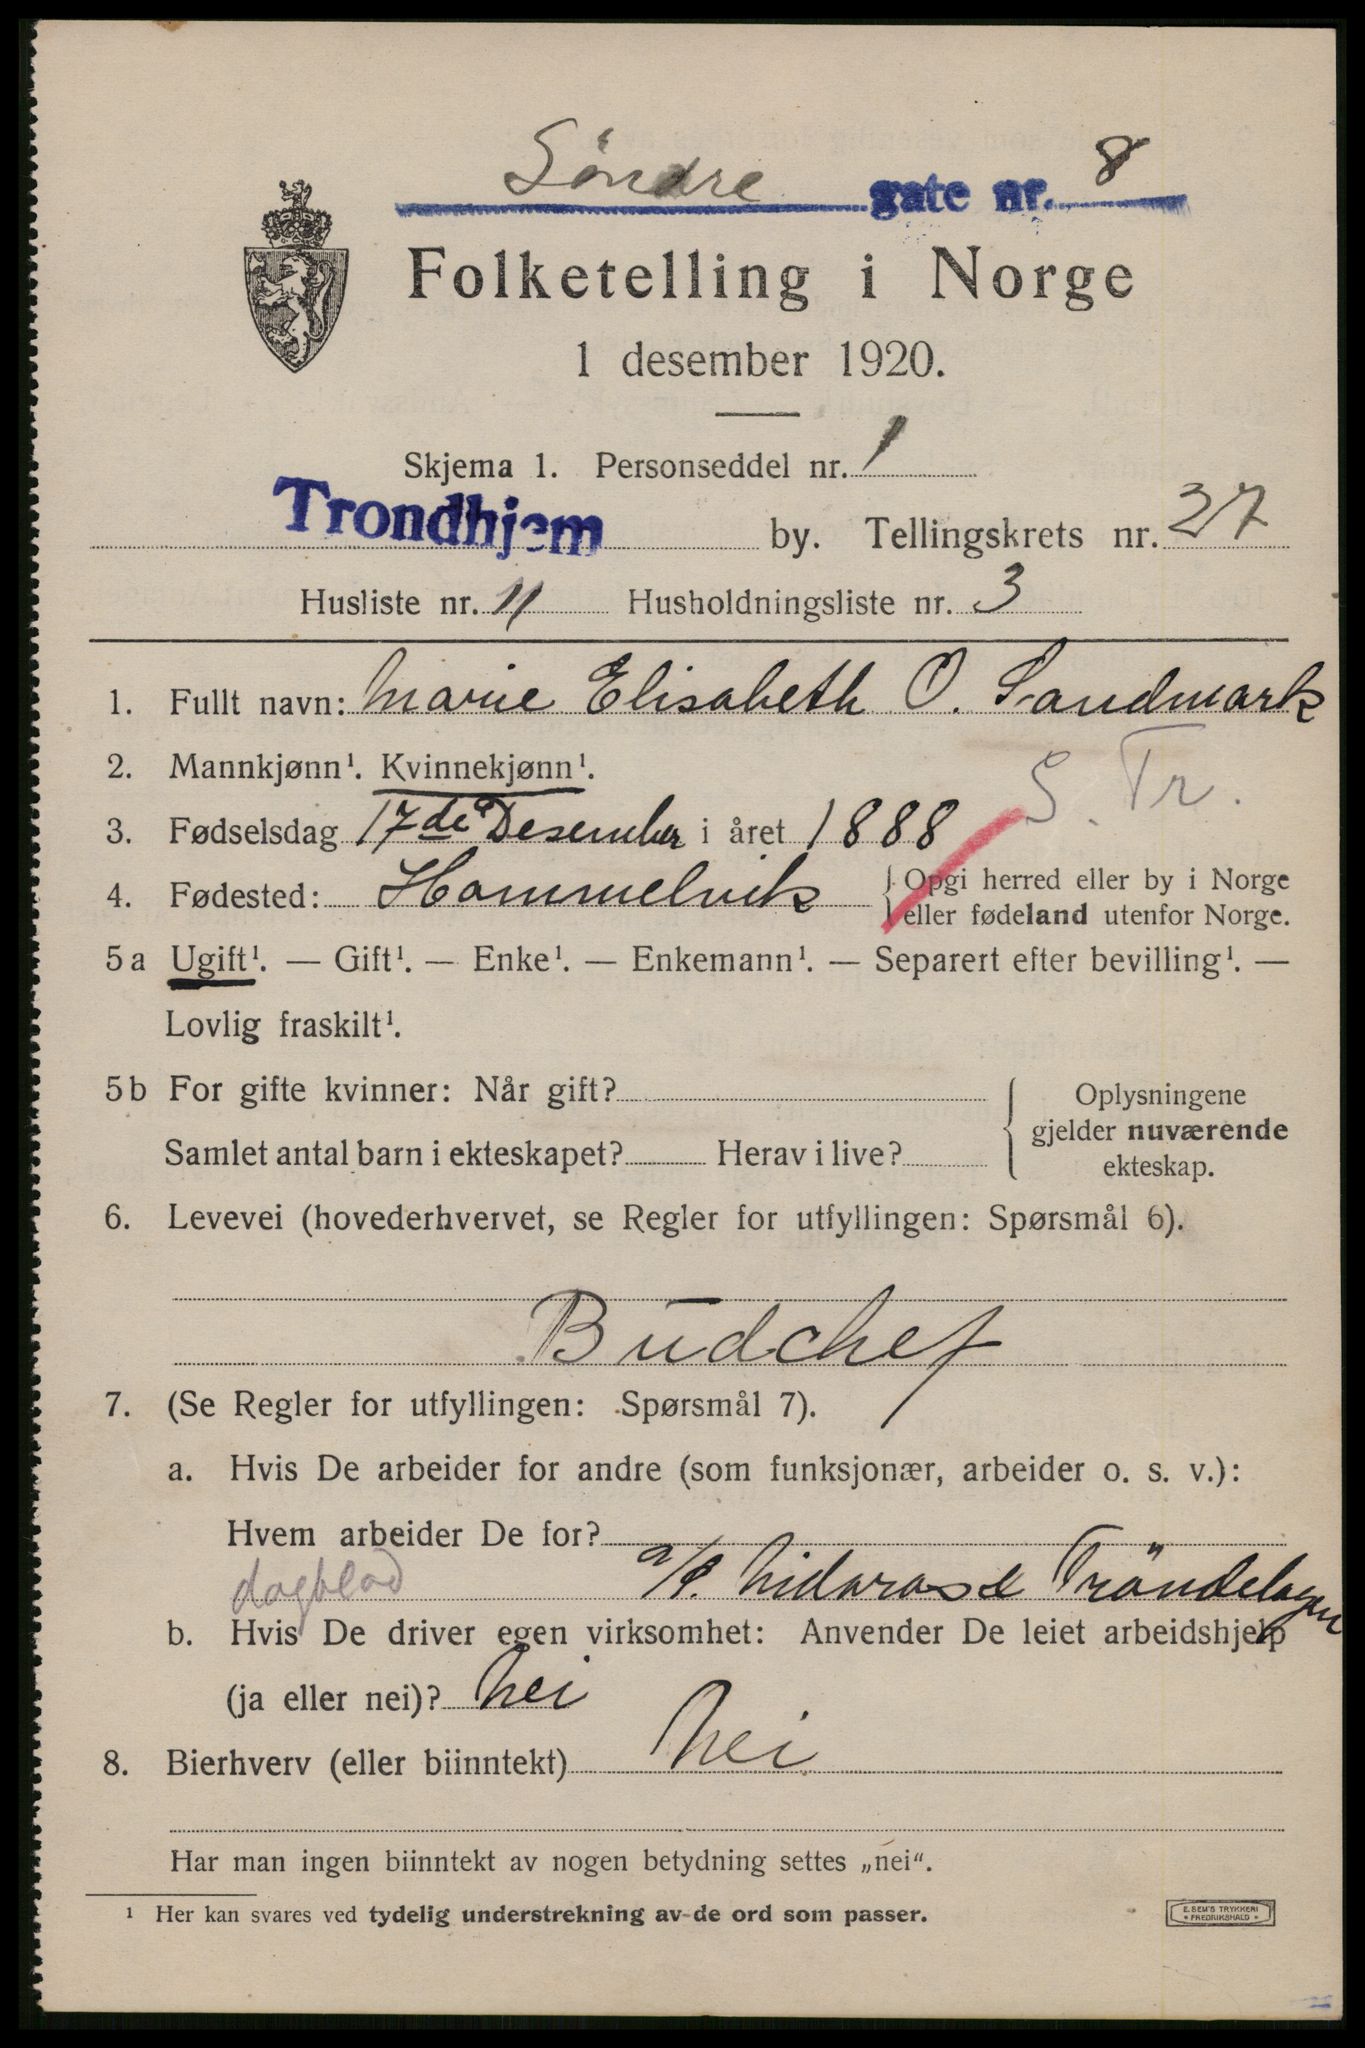 Søndre gate nr. 8
Folketelling i Norge
1 desember 1920.
Skjema 1. Personseddel nr. 1
Trondhjem by. Tellingskrets nr. 37
Husliste nr. 11 Husholdningsliste nr. 3
1. Fullt navn: Marie Elisabeth O. Sandmark
2. Mannkjønn¹. Kvinnekjønn¹.
S. Tr.
3. Fødselsdag 17de Desember i året 1888
4. Fødested: Hommelvik { Opgi herred eller by i Norge
eller fødeland utenfor Norge.
5 a Ugift¹. — Gift¹. — Enke¹. — Enkemann¹. — Separert efter bevilling¹. —
Lovlig fraskilt¹.
5 b For gifte kvinner: Når gift? { Oplysningene
gjelder nuværende
Samlet antal barn i ekteskapet? Herav i live? ekteskap.
6. Levevei (hovederhvervet, se Regler for utfyllingen: Spørsmål 6).
Budchef
7. (Se Regler for utfyllingen: Spørsmål 7).
a. Hvis De arbeider for andre (som funksjonær, arbeider o. s. v.):
Hvem arbeider De for?
dagblad a/s. Nidaros & Tröndelagen
b. Hvis De driver egen virksomhet: Anvender De leiet arbeidshjelp
(ja eller nei)? Nei
8. Bierhverv (eller biinntekt) Nei
Har man ingen biinntekt av nogen betydning settes „nei“.
¹ Her kan svares ved tydelig understrekning av de ord som passer.
E. SEM'S TRYKKERI
• FREDRIKSHALD •